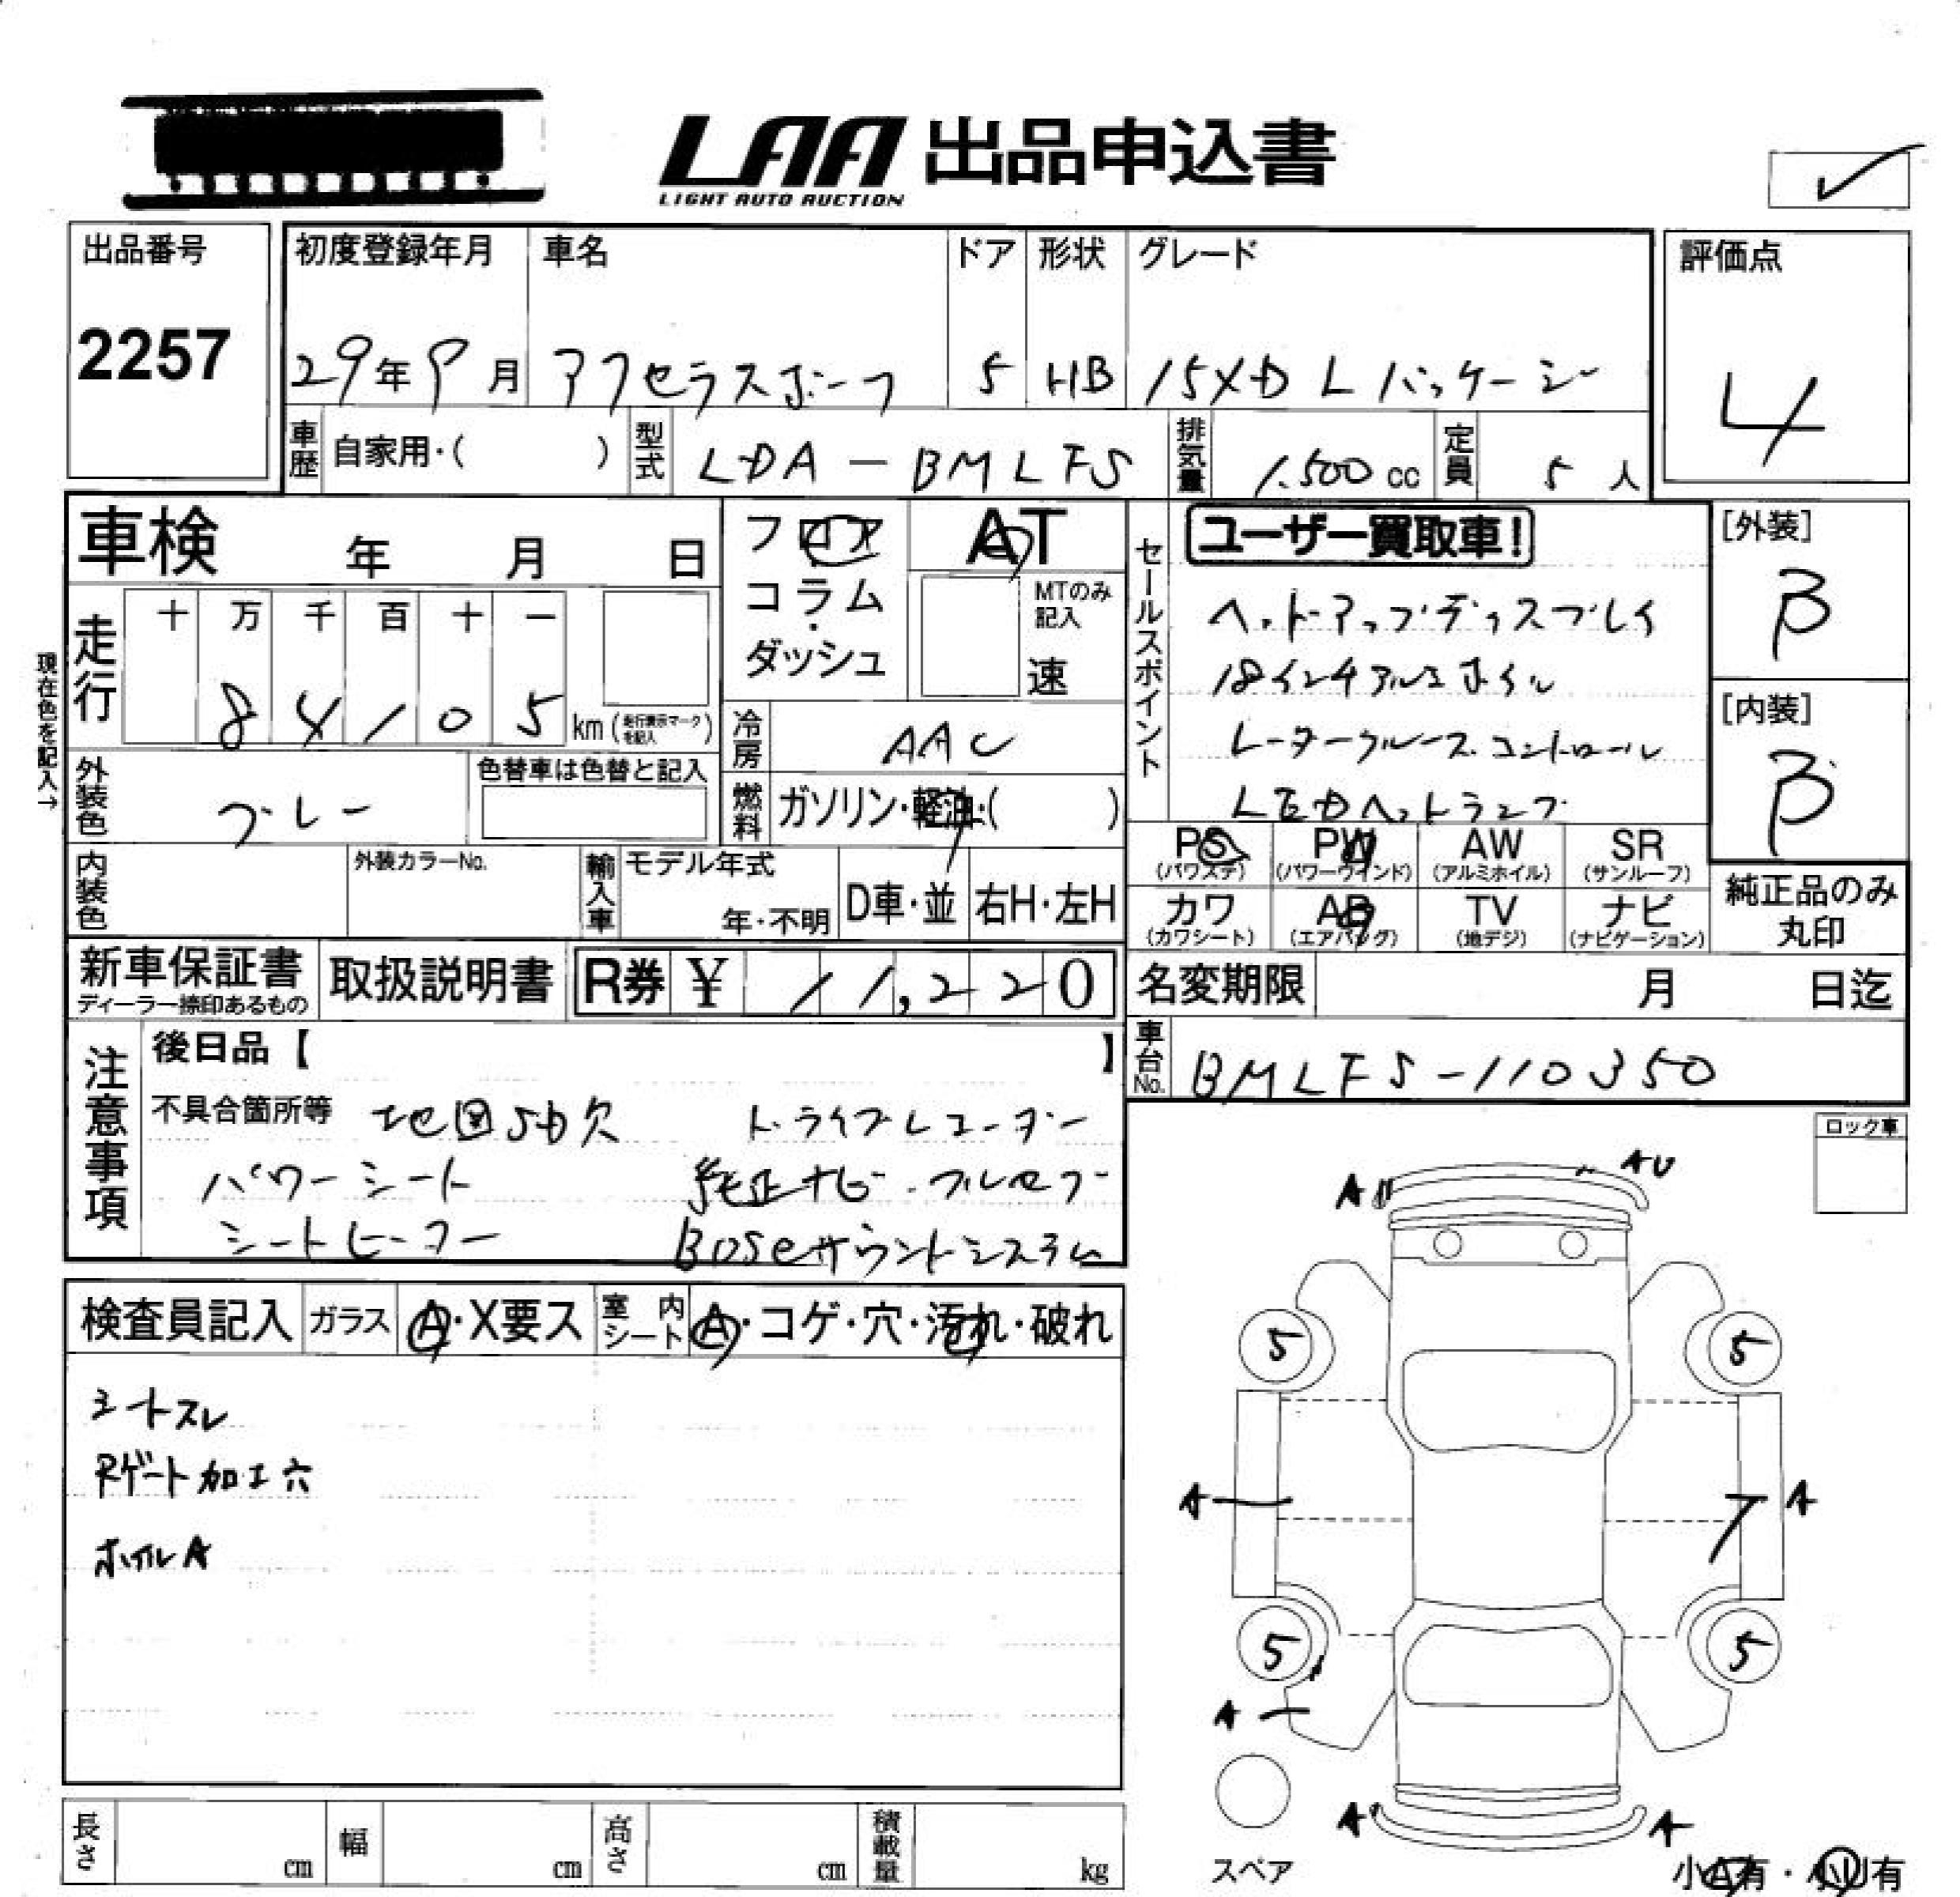 LAA 出品申込書
LIGHT AUTO AUCTION
出品番号
2257
初度登録年月 車名 ドア 形状 グレード
29年9月 アクセラスポーツ 5 HB 15XD Lパッケージ
評価点
4
車歴 自家用・( ) 型式 LDA-BMLFS 排気量 1.500cc 定員 5人
車検 年 月 日
フロア・コラム・ダッシュ
AT
MTのみ記入
速
セールスポイント
ユーザー買取車!
ヘッドアップディスプレイ
18インチアルミホイル
レーダークルーズコントロール
LEDヘッドランプ
[外装]
B
[内装]
B
現在色を記入→
走行 十 万 千 百 十 一
8 4 1 0 5 km (走行表示マークを記入)
冷房 AAC
外装色 グレー 色替車は色替と記入
燃料 ガソリン・軽油・( )
内装色 外装カラーNo. 輸入車 モデル年式 年・不明 D車・並 右H・左H
PS (パワステ) PW (パワーウインド) AW (アルミホイル) SR (サンルーフ)
カワ (カワシート) AB (エアバッグ) TV (地デジ) ナビ (ナビゲーション)
純正品のみ丸印
新車保証書 ディーラー捺印あるもの 取扱説明書 R券 ¥ 11,220
名変期限 月 日迄
車台No. BMLFS-110350
注意事項
後日品【 】
不具合箇所等 地図SD欠 ドライブレコーダー
パワーシート 純正ナビ・フルセグ
シートヒーター BOSEサウンドシステム
ロック車
検査員記入 ガラス A・X要ス 室内シート A・コゲ・穴・汚れ・破れ
シートスレ
Rゲート加工穴
ホイルA
A AU
5 5
A A
5 5
A
A A
スペア
小A有・小U有
長さ cm 幅 cm 高さ cm 積載量 kg